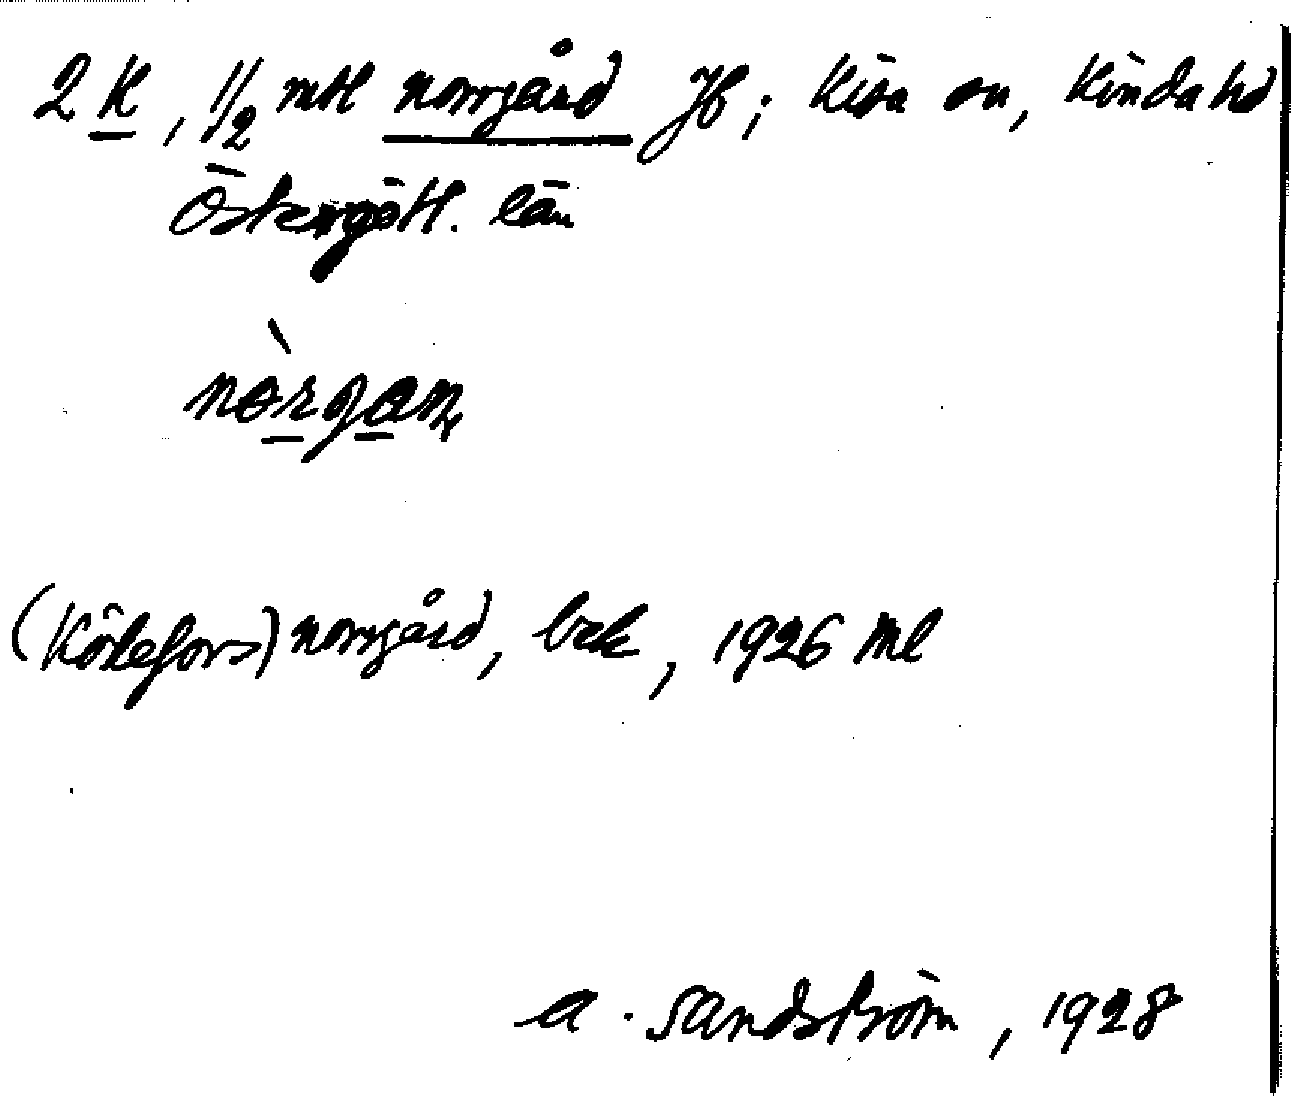 2 K, 1/2 mtl norrgård Jb; Kisa sn, Kinda hd
Östergötl. län
nòrgan
(Kölefors) norrgård, bek, 1926 Ml
A. Sandström, 1928